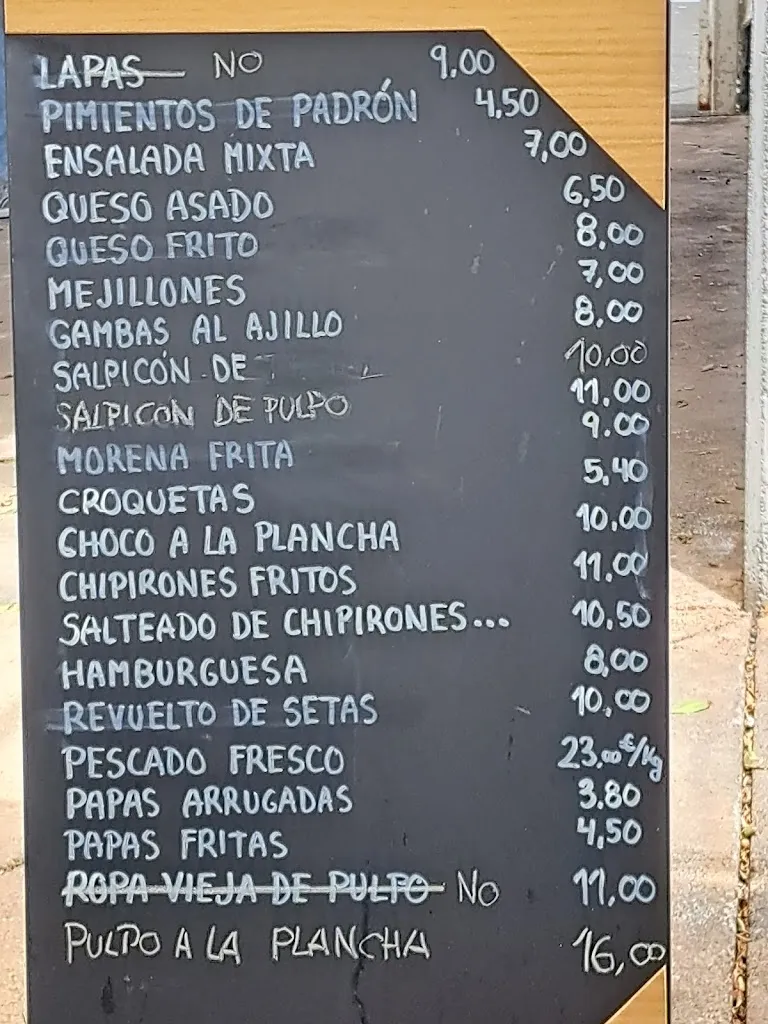 LAPAS NO 9.00
PIMIENTOS DE PADRÓN 4,50
ENSALADA MIXTA 7,00
QUESO ASADO 6,50
QUESO FRITO 8,00
MEJILLONES 7,00
GAMBAS AL AJILLO 8,00
SALPICÓN DE 10,00
SALPICON DE PULPO 11.00
MORENA FRITA 9.00
CROQUETAS 5,40
CHOCO A LA PLANCHA 10,00
CHIPIRONES FRITOS 11,00
SALTEADO DE CHIPIRONES... 10,50
HAMBURGUESA 8,00
REVUELTO DE SETAS 10,00
PESCADO FRESCO 23.00€/Kg
PAPAS ARRUGADAS 3.80
PAPAS FRITAS 4,50
ROPA VIEJA DE PULPO NO 11,00
PULPO A LA PLANCHA 16,00